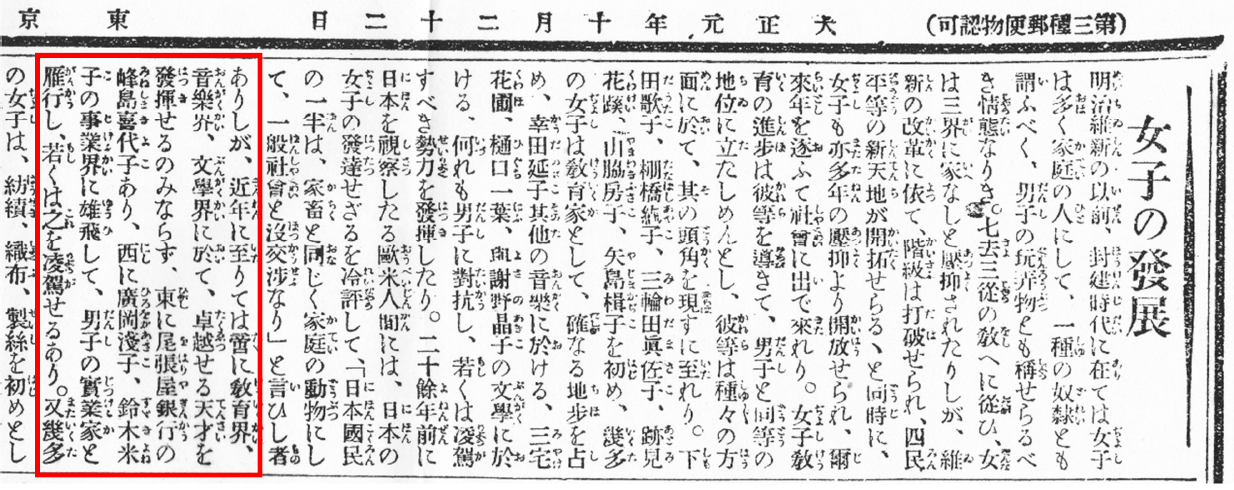 (第三種郵便物認可)
大正元年十月二十二日
東京
女子の發展
明治維新の以前、封建時代に在ては女子
は多く家庭の人にして、一種の奴隷とも
謂ふべく、男子の玩弄物とも稱せらるべ
き情態なりき。七去三從の敎へに從ひ、女
は三界に家なしと壓抑されたりしが、維
新の改革に依て、階級は打破せられ、四民
平等の新天地が開拓せらるゝと同時に、
女子も亦多年の壓抑より開放せられ、爾
來年を逐ふて社會に出で來れり。女子敎
育の進步は彼等を導きて、男子と同等の
地位に立たしめんとし、彼等は種々の方
面に於て、其の頭角を現すに至れり。下
田歌子、棚橋絢子、三輪田眞佐子、跡見
花蹊、山脇房子、矢島楫子を初め、幾多
の女子は敎育家として、確なる地步を占
め、幸田延子其他の音樂に於ける、三宅
花圃、樋口一葉、與謝野晶子の文學に於
ける、何れも男子に對抗し、若くは凌駕
すべき勢力を發揮したり。二十餘年前に
日本を視察したる歐米人間には、日本の
女子の發達せざるを冷評して、「日本國民
の一半は、家畜と同じく家庭の動物にし
て、一般社會と沒交涉なり」と言ひし者
ありしが、近年に至りては啻に敎育界、
音樂界、文學界に於て、卓越せる天才を
發揮せるのみならず、東に尾張屋銀行の
峰島喜代子あり、西に廣岡淺子、鈴木米
子の事業界に雄飛して、男子の實業家と
雁行し、若くは之を凌駕せるあり。又幾多
の女子は、紡績、織布、製絲を初めとし